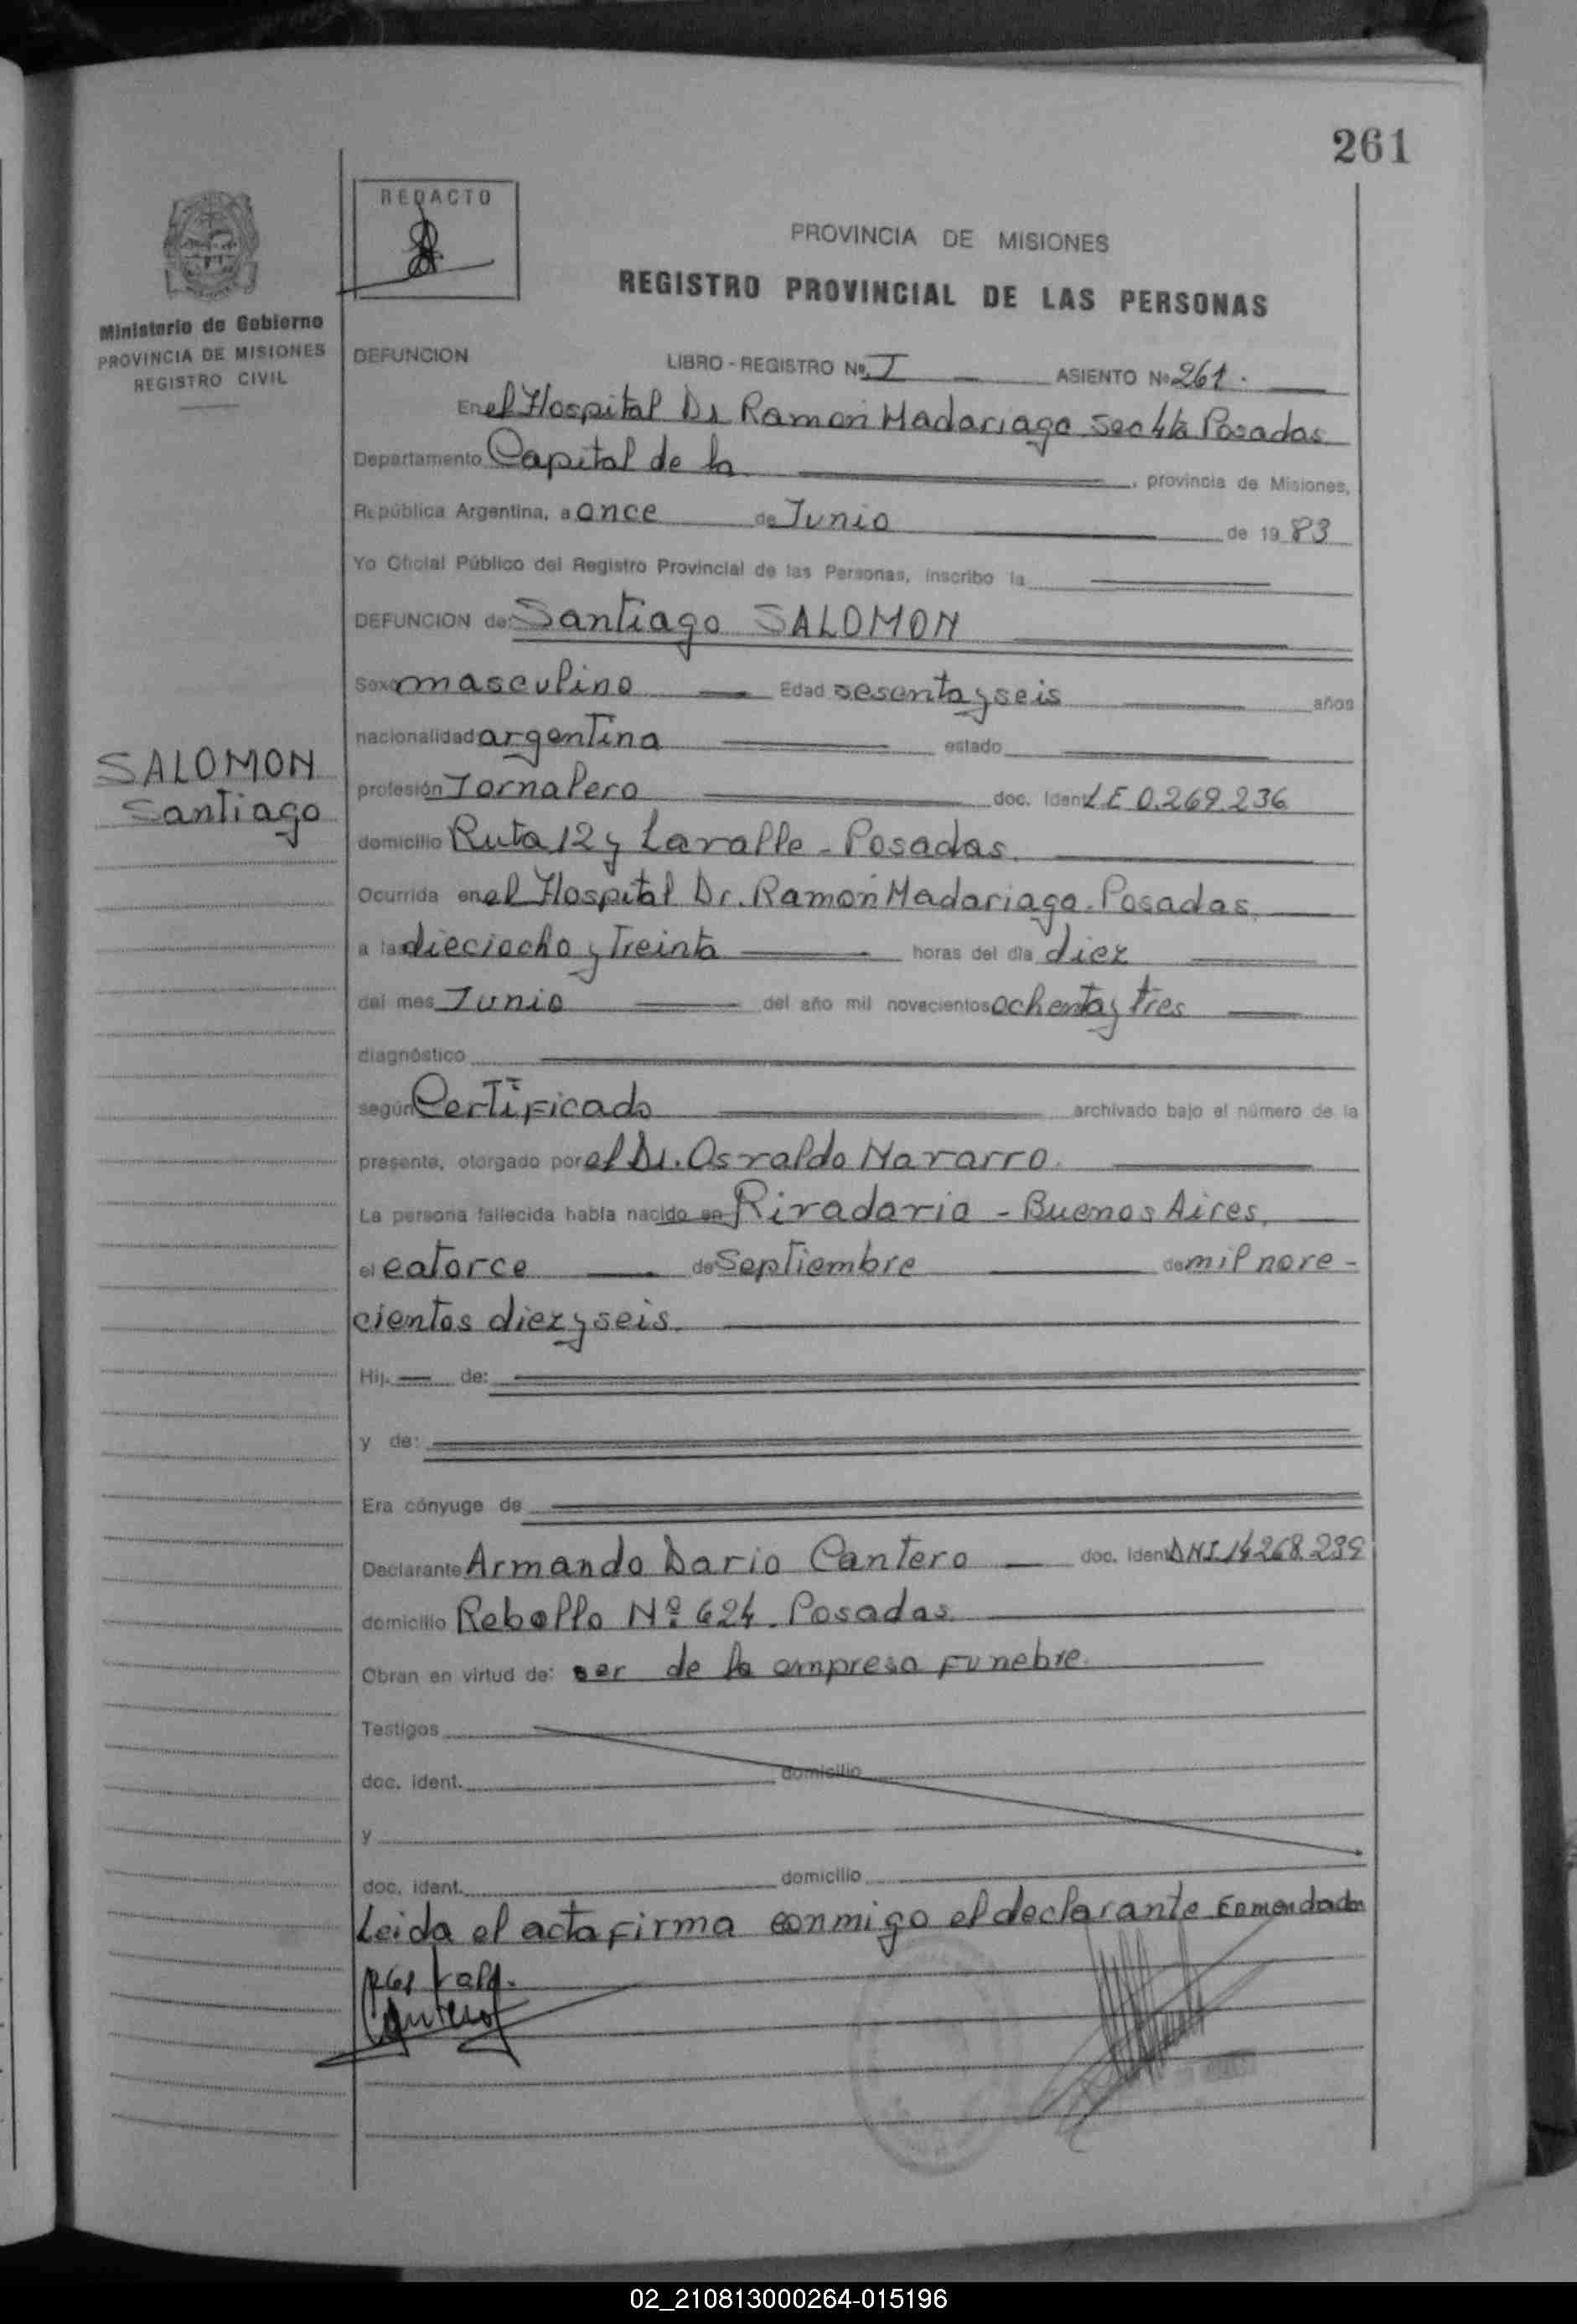 261
REDACTO
PROVINCIA DE MISIONES
REGISTRO PROVINCIAL DE LAS PERSONAS
Ministerio de Gobierno
PROVINCIA DE MISIONES
REGISTRO CIVIL
DEFUNCION LIBRO - REGISTRO Nº I ASIENTO Nº 261.
En el Hospital Dr Ramon Madariaga Sec 4ta Posadas
Departamento Capital de la , provincia de Misiones,
República Argentina, a once de Junio de 1983
Yo Oficial Público del Registro Provincial de las Personas, inscribo la
DEFUNCION de: Santiago SALOMON
Sexo masculino Edad sesenta y seis años
nacionalidad argentina estado
SALOMON
Santiago
profesión Jornalero doc. Ident. LE 0.269.236
domicilio Ruta 12 y Lavalle - Posadas.
Ocurrida en el Hospital Dr. Ramon Madariaga - Posadas.
a las dieciocho y Treinta horas del día diez
del mes Junio del año mil novecientos ochenta y tres
diagnóstico
según Certificado archivado bajo el número de la
presente, otorgado por el Dr. Osvaldo Navarro.
La persona fallecida había nacido en Rivadavia - Buenos Aires,
el catorce de Septiembre de mil nove-
cientos diez y seis.
Hij. de:
y de:
Era cónyuge de
Declarante Armando Dario Cantero doc. Ident. DNI 14268.239
domicilio Rebollo Nº 624. Posadas.
Obran en virtud de: ser de la empresa Funebre.
Testigos
doc. ident. domicilio
y
doc. ident. domicilio
Leida el acta firma conmigo el declarante Enmendado
Cantero
02_210813000264-015196